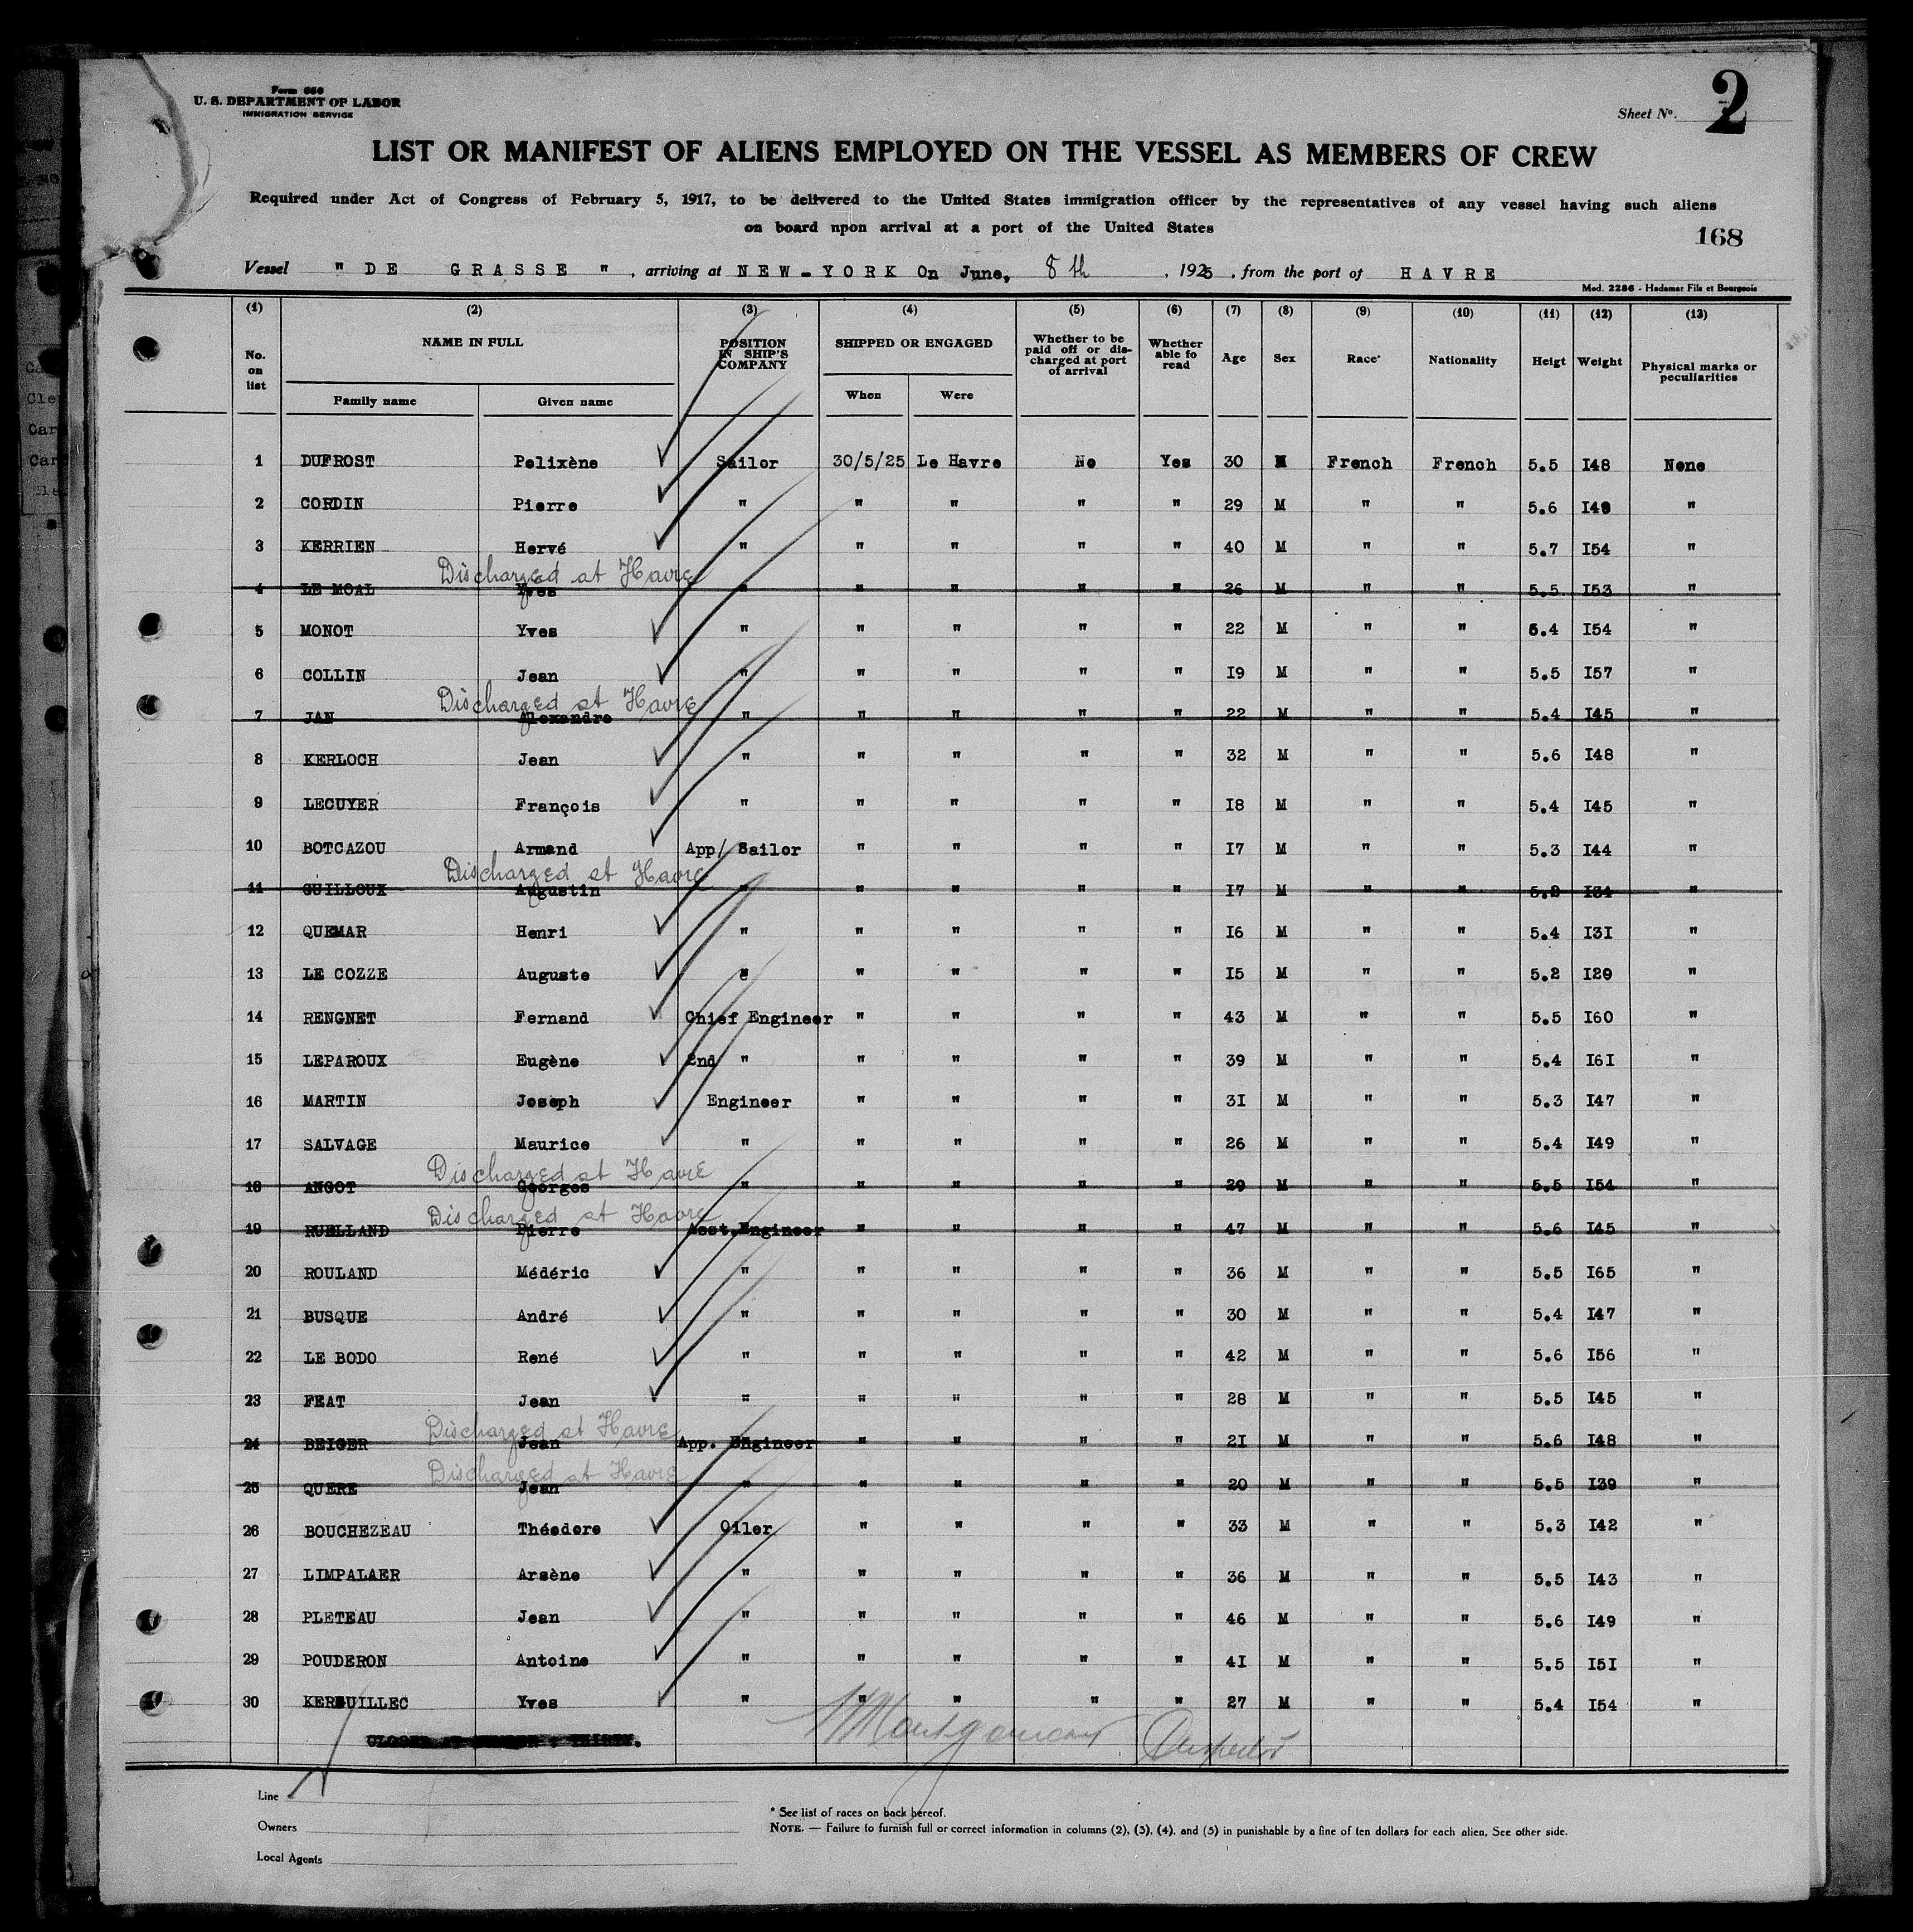 Form 680
U. S. DEPARTMENT OF LABOR
IMMIGRATION SERVICE
Sheet No. 2
LIST OR MANIFEST OF ALIENS EMPLOYED ON THE VESSEL AS MEMBERS OF CREW
Required under Act of Congress of February 5, 1917, to be delivered to the United States immigration officer by the representatives of any vessel having such aliens
on board upon arrival at a port of the United States
168
Vessel " DE GRASSE ", arriving at NEW-YORK On June, 8th, 1925, from the port of HAVRE
Mod. 2286 - Hadamar Fils et Bourgeois
(1) (2) (3) (4) (5) (6) (7) (8) (9) (10) (11) (12) (13)
No. on list NAME IN FULL POSITION IN SHIP'S COMPANY SHIPPED OR ENGAGED Whether to be paid off or discharged at port of arrival Whether able fo read Age Sex Race* Nationality Heigt Weight Physical marks or peculiarities
Family name Given name When Were
1 DUFROST Pelixène Sailor 30/5/25 Le Havre No Yes 30 M French French 5.5 I48 None
2 CORDIN Pierre " " " " " 29 M " " 5.6 I49 "
3 KERRIEN Hervé " " " " " 40 M " " 5.7 I54 "
Discharged at Havre
4 LE MOAL Yves " " " " " 26 M " " 5.5 I53 "
5 MONOT Yves " " " " " 22 M " " 5.4 I54 "
6 COLLIN Jean " " " " " I9 M " " 5.5 I57 "
Discharged at Havre
7 JAN Alexandre " " " " " 22 M " " 5.4 I45 "
8 KERLOCH Jean " " " " " 32 M " " 5.6 I48 "
9 LECUYER François " " " " " I8 M " " 5.4 I45 "
10 BOTCAZOU Armand App/ Sailor " " " " I7 M " " 5.3 I44 "
Discharged at Havre
11 GUILLOUX Augustin " " " " " I7 M " " 5.2 I34 "
12 QUEMAR Henri " " " " " I6 M " " 5.4 I3I "
13 LE COZZE Auguste " " " " " I5 M " " 5.2 I29 "
14 RENGNET Fernand Chief Engineer " " " " 43 M " " 5.5 I60 "
15 LEPAROUX Eugène 2nd " " " " " 39 M " " 5.4 I6I "
16 MARTIN Joseph Engineer " " " " 3I M " " 5.3 I47 "
17 SALVAGE Maurice " " " " " 26 M " " 5.4 I49 "
Discharged at Havre
18 ANGOT Georges " " " " " 29 M " " 5.5 I54 "
Discharged at Havre
19 RUELLAND Pierre Asst.Engineer " " " " 47 M " " 5.6 I45 "
20 ROULAND Médéric " " " " " 36 M " " 5.5 I65 "
21 BUSQUE André " " " " " 30 M " " 5.4 I47 "
22 LE BODO René " " " " " 42 M " " 5.6 I56 "
23 FEAT Jean " " " " " 28 M " " 5.5 I45 "
Discharged at Havre
24 BEIGER Jean App. Engineer " " " " 2I M " " 5.6 I48 "
Discharged at Havre
25 QUERE Jean " " " " " 20 M " " 5.5 I39 "
26 BOUCHEZEAU Théodore Oiler " " " " 33 M " " 5.3 I42 "
27 LIMPALAER Arsène " " " " " 36 M " " 5.5 I43 "
28 PLETEAU Jean " " " " " 46 M " " 5.6 I49 "
29 POUDERON Antoine " " " " " 4I M " " 5.5 I5I "
30 KEROUILLEC Yves " " " " " 27 M " " 5.4 I54 "
CLOSED AT NUMBER : THIRTY.
Montgomery Inspector
Line
Owners
Local Agents
* See list of races on back hereof.
NOTE. — Failure to furnish full or correct information in columns (2), (3), (4), and (5) in punishable by a fine of ten dollars for each alien. See other side.